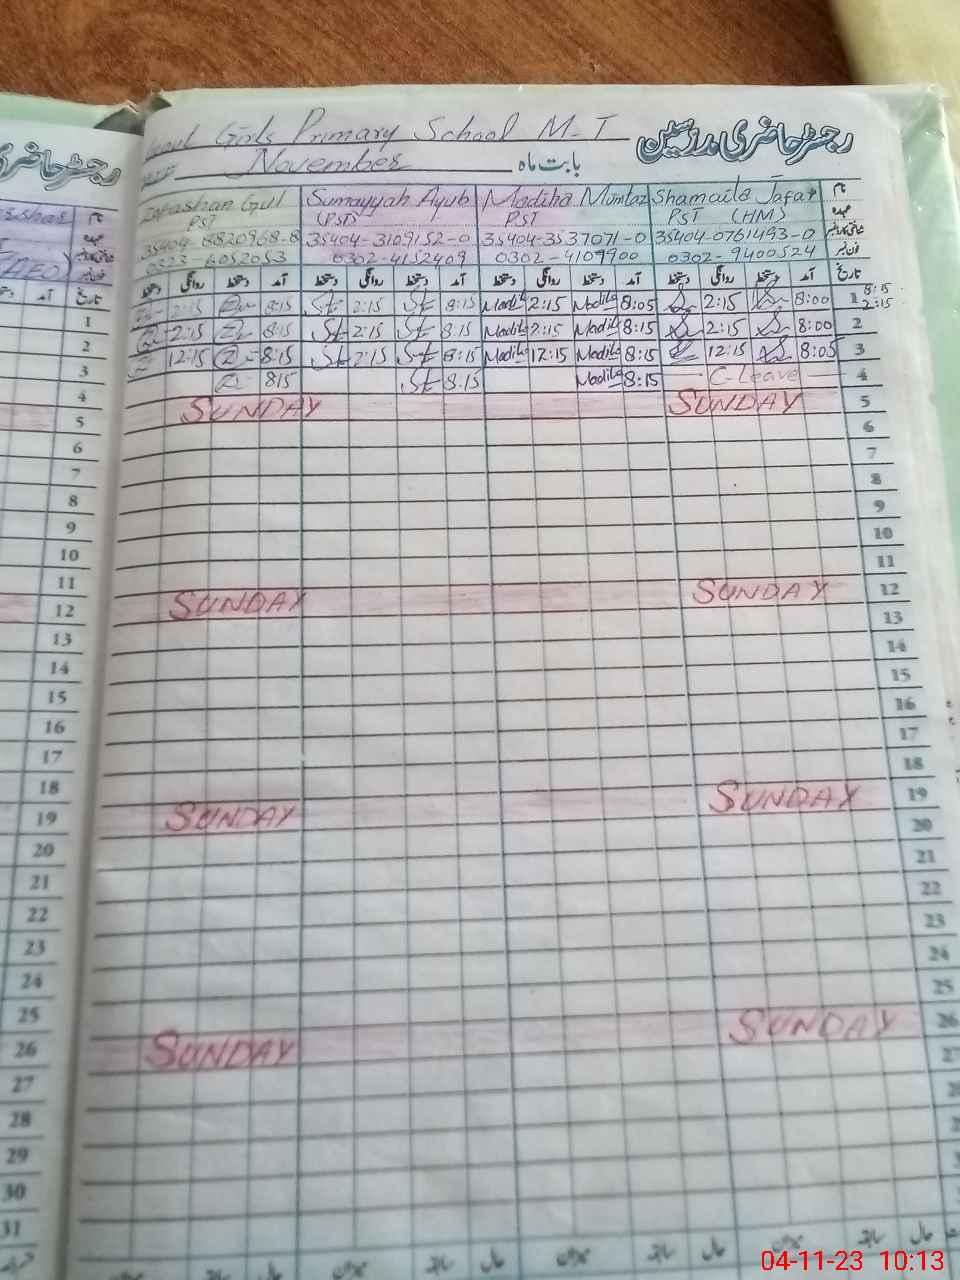 رجسٹر حاضری مدرسین
Girls Primary School M-I
بابت ماہ November
نام Shamaila Jafar Madiha Mumtaz Sumayyah Ayub Gul
عہدہ PST (HM) PST (PST) PST
35404-0761493-0 35404-3537071-0 35404-3109152-0 35404-6820968-8
0302-9400524 0302-4109900 0302-4152409 0323-6052053
تاریخ آمد دستخط روانگی دستخط آمد دستخط روانگی دستخط آمد دستخط روانگی دستخط آمد دستخط روانگی دستخط
8:15
2:15
1 8:00 2:15 8:05 Madiha 2:15 Madiha 8:15 2:15 8:15 2:15
2 8:00 2:15 8:15 Madiha 2:15 Madiha 8:15 2:15 8:15 2:15
3 8:05 12:15 8:15 Madiha 12:15 Madiha 8:15 2:15 8:15 12:15
4 C-Leave 8:15 Madiha 8:15 815
5 SUNDAY SUNDAY
6
7
8
9
10
11
12 SUNDAY SUNDAY
13
14
15
16
17
18
19 SUNDAY SUNDAY
20
21
22
23
24
25
26 SUNDAY SUNDAY
27
رجسٹر حاضری
نام
عہدہ
تاریخ آمد
1
2
3
4
5
6
7
8
9
10
11
12
13
14
15
16
17
18
19
20
21
22
23
24
25
26
27
28
29
30
31
حال سابقہ میزان حال سابقہ میزان
04-11-23 10:13